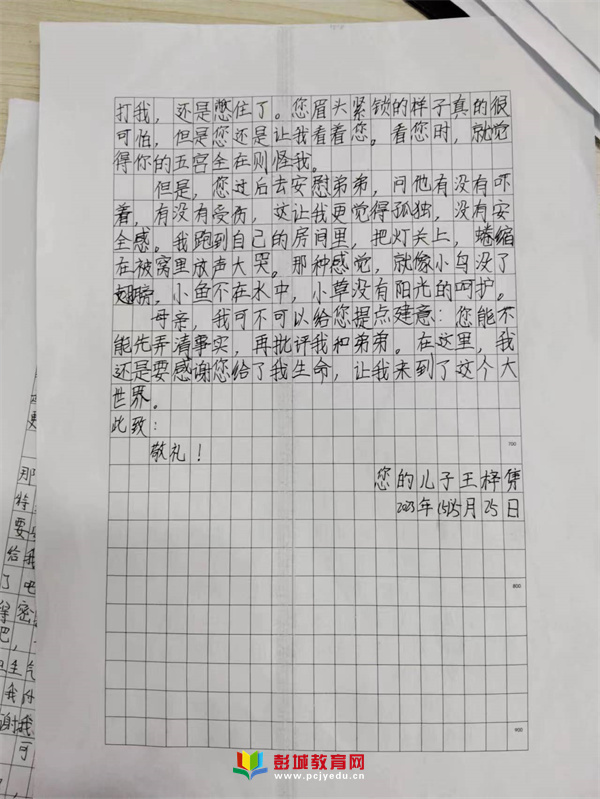 打我，还是憋住了。您眉头紧锁的样子真的很
可怕，但是您还是让我看着您。看您时，就觉
得你的五官全在则怪我。
但是，您过后去安慰弟弟，问他有没有吓
着，有没有受伤，这让我更觉得孤独，没有安
全感。我跑到自己的房间里，把灯关上，蜷缩
在被窝里放声大哭。那种感觉，就像小鸟没了
翅膀，小鱼不在水中，小草没有阳光的呵护。
母亲，我可不可以给您提点建意：您能不
能先弄清事实，再批评我和弟弟。在这里，我
还是要感谢您给了我生命，让我来到了这个大
世界。
此致：
敬礼！
700
您的儿子王梓
2023年 月25日
800
900
那
特
要
给我
了
得密
吧，
生气
我
谢我
可
彭城教育网
www.pcjyedu.cn